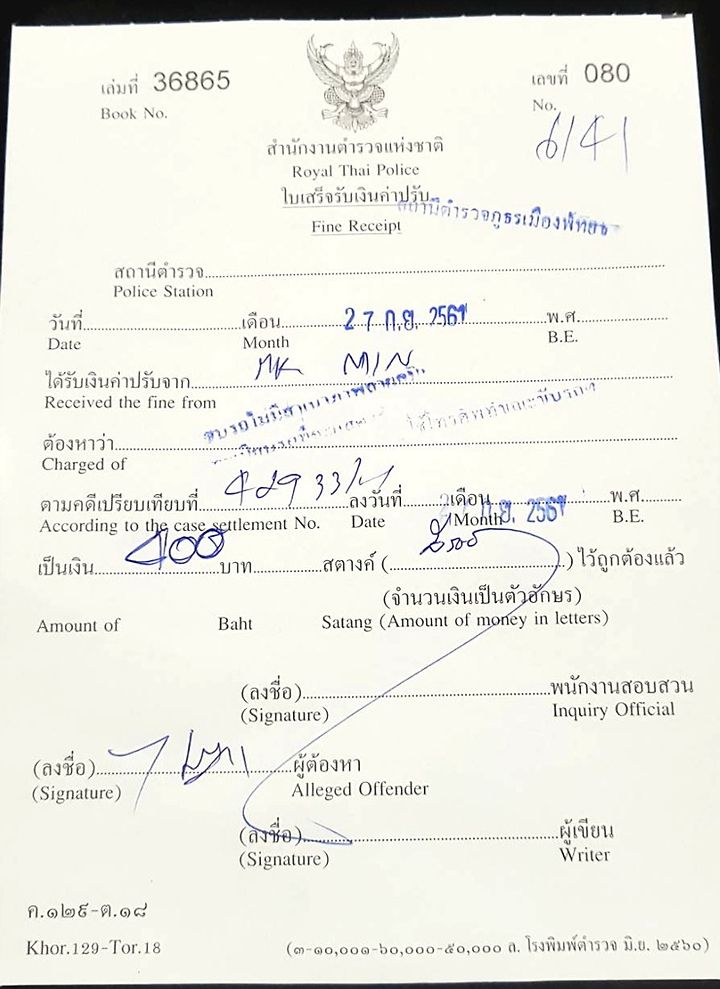 เล่มที่ 36865 เลขที่ 080
Book No. No.
6/41
สำนักงานตำรวจแห่งชาติ
Royal Thai Police
ใบเสร็จรับเงินค่าปรับ
สถานีตำรวจภูธรเมืองพัทยา
Fine Receipt
สถานีตำรวจ
Police Station
วันที่ เดือน 27 ก.ย. 2561 พ.ศ.
Date Month B.E.
ได้รับเงินค่าปรับจาก MR MIN
Received the fine from
ใช้โทรศัพท์ขณะขับรถ
ต้องหาว่า
Charged of
ตามคดีเปรียบเทียบที่ ลงวันที่ เดือน ก.ย. 2561 พ.ศ.
According to the case settlement No. Date Month B.E.
เป็นเงิน 400 บาท สตางค์ ( ) ไว้ถูกต้องแล้ว
(จำนวนเงินเป็นตัวอักษร)
Amount of Baht Satang (Amount of money in letters)
(ลงชื่อ) พนักงานสอบสวน
(Signature) Inquiry Official
(ลงชื่อ) ผู้ต้องหา
(Signature) Alleged Offender
(ลงชื่อ) ผู้เขียน
(Signature) Writer
ค.๑๒๙-ต.๑๘
Khor.129-Tor.18 (๓-๑๐,๐๐๑-๖๐,๐๐๐-๕๐,๐๐๐ ล. โรงพิมพ์ตำรวจ มิ.ย. ๒๕๖๐)